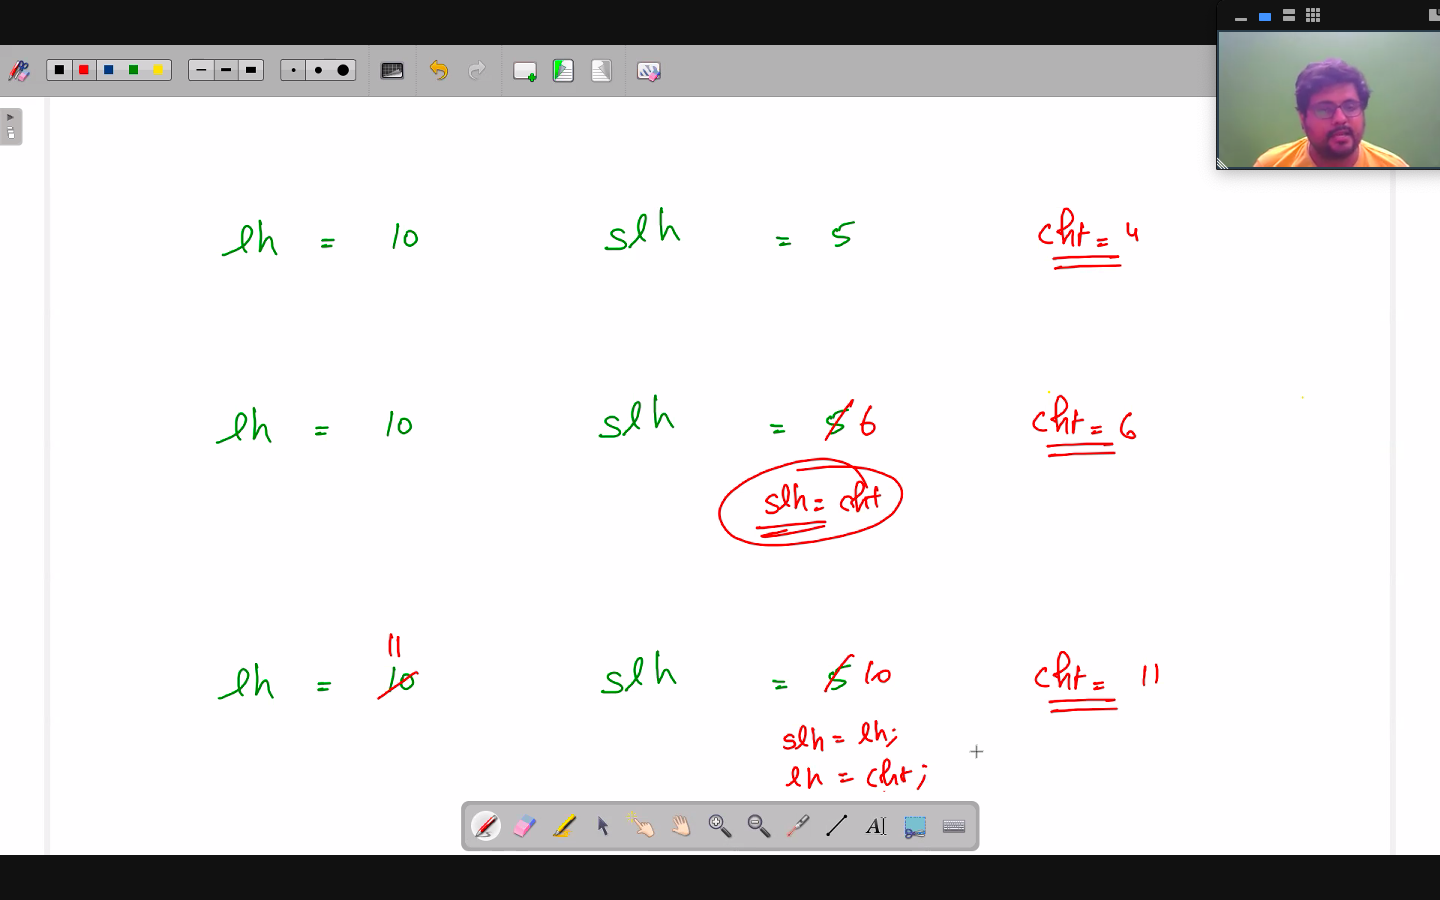 lh = 10 slh = 5 cht = 4
lh = 10 slh = 5 6 cht = 6
slh = cht
11
lh = 10 slh = 5 10 cht = 11
slh = lh;
lh = cht;